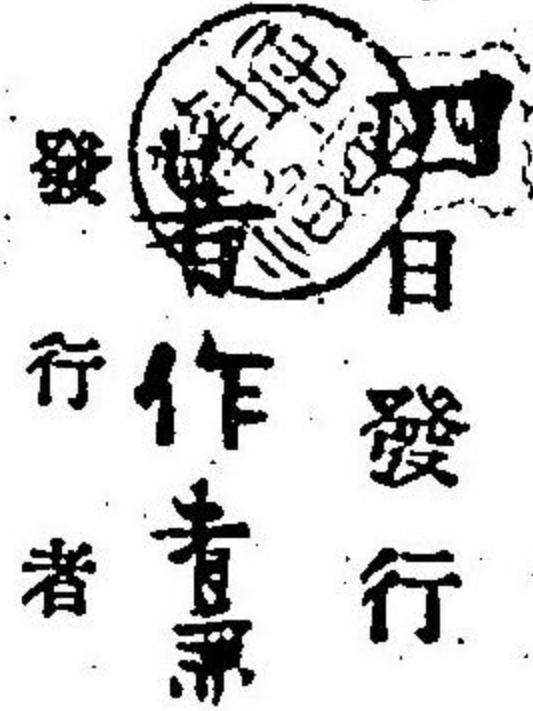 四日發行
著作者兼
發行者